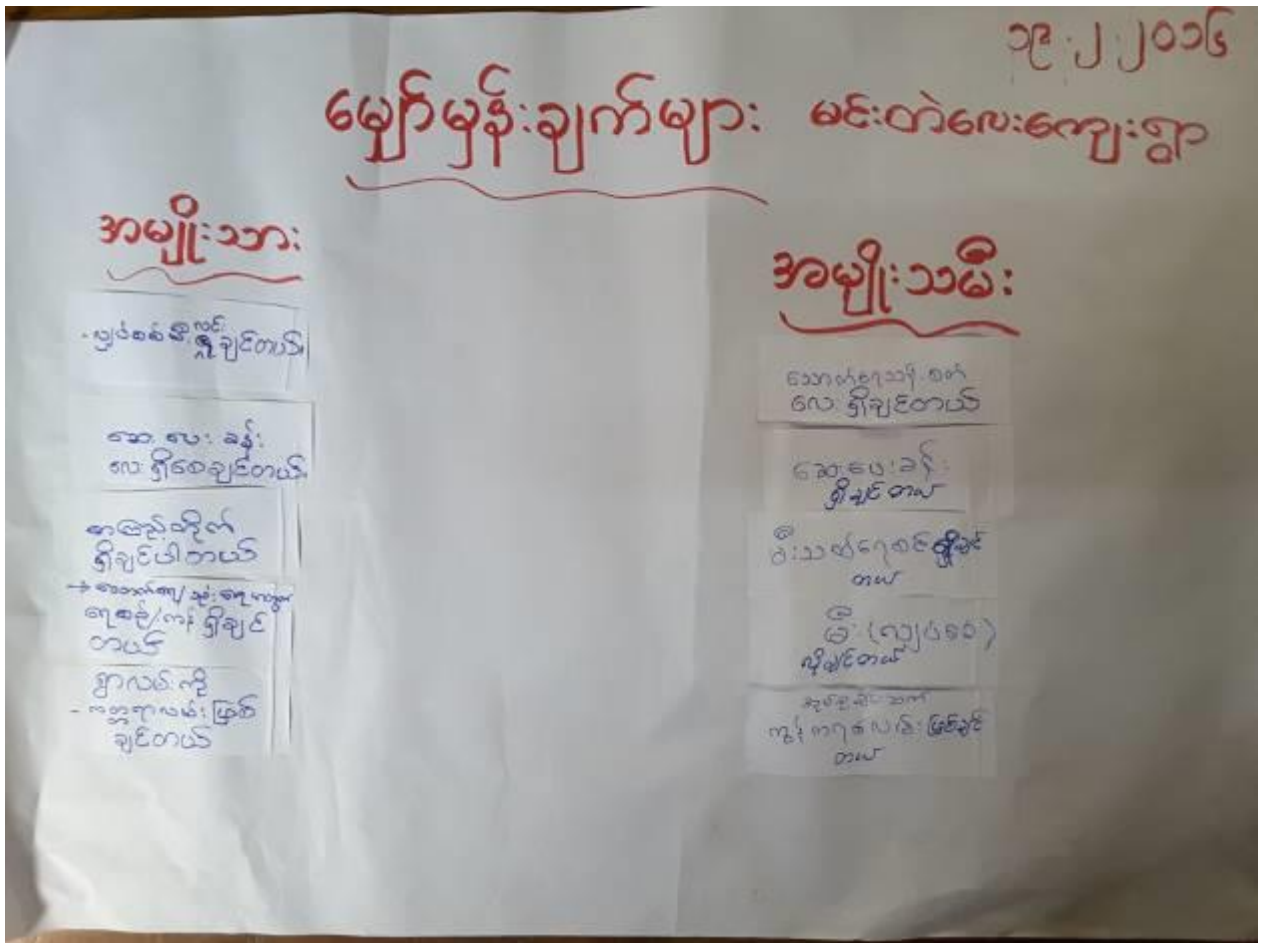 ၁၉.၂.၂၀၁၆
မျှော်မှန်းချက်များ မင်းတဲလေးကျေးရွာ
အမျိုးသား
- လျှပ်စစ်မီး လင်းချင်တယ်။
ဆေးပေးခန်း
လေးရှိစေချင်တယ်။
စာကြည့်တိုက်
ရှိချင်ပါတယ်
→ သောက်ရေ/သုံးရေအတွက်
ရေစည်/ကန် ရှိချင်
တယ်
ရွာလမ်းကို
- ကတ္တရာလမ်းဖြစ်
ချင်တယ်
အမျိုးသမီး
သောက်ရေသန့်စက်
လေးရှိချင်တယ်
ဆေးပေးခန်း
ရှိချင်တယ်
မီးသတ်ရေစင်ရှိချင်
တယ်
မီး (လျှပ်စစ်)
လိုချင်တယ်
ကွန်ကရစ်လမ်းဖြစ်ချင်
တယ်